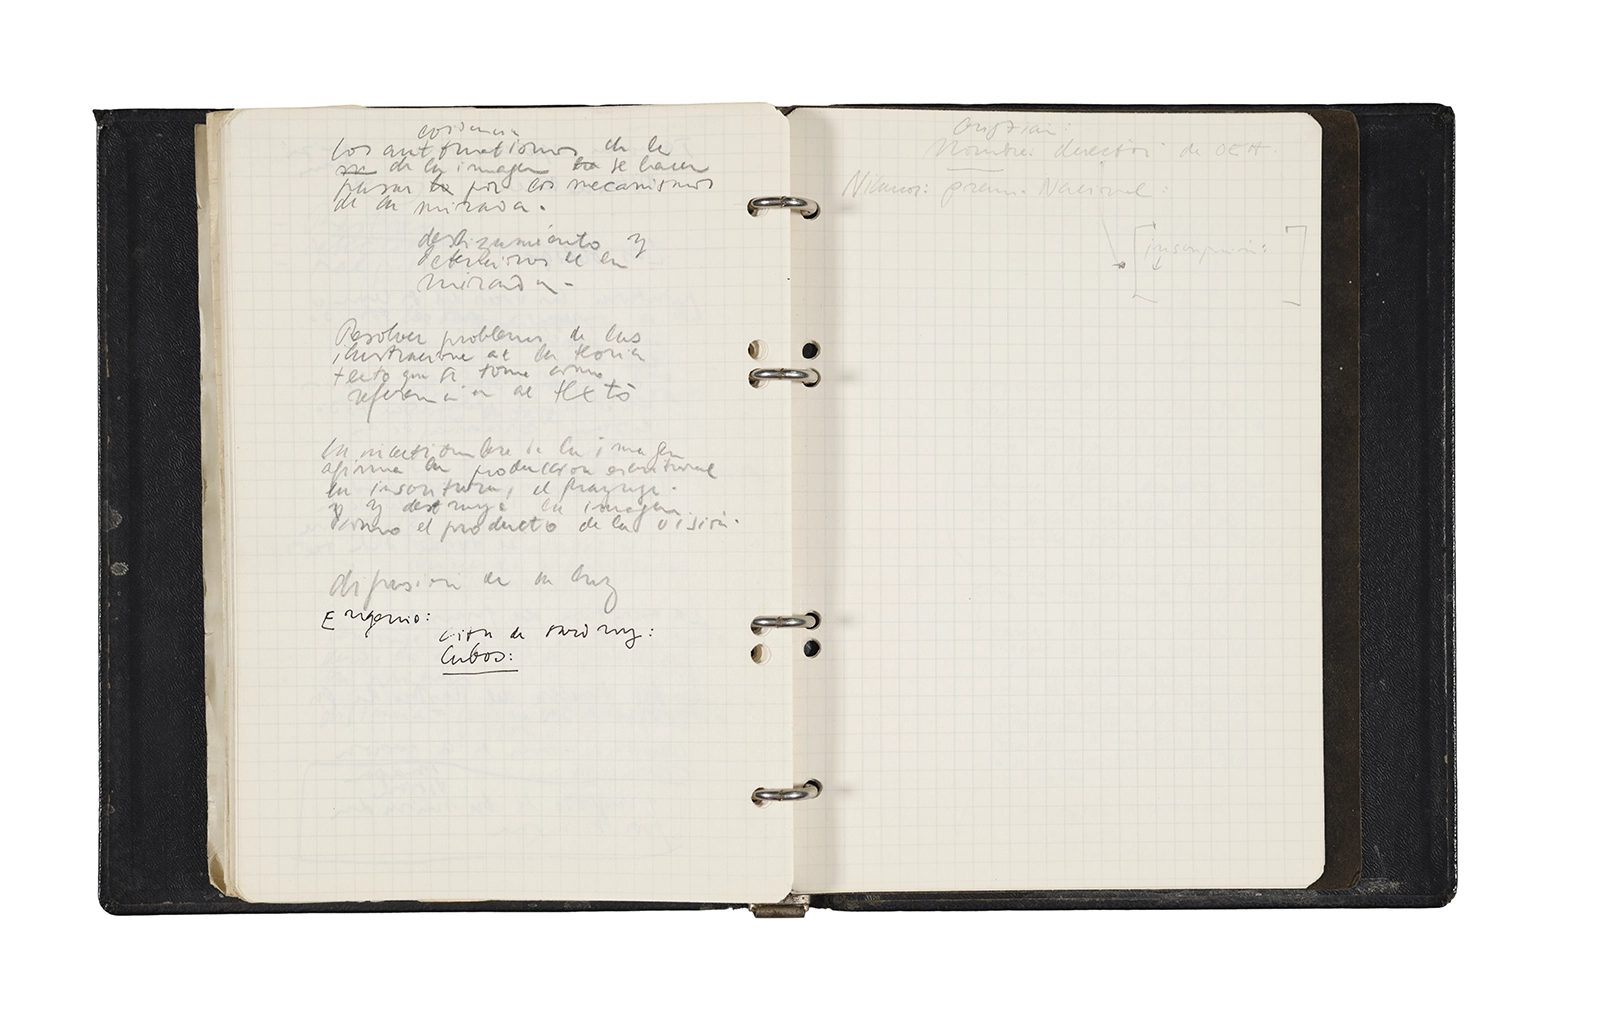 Los automatismos de la
de la imagen se hacen
pasar por los mecanismos
de la mirada.
deslizamiento y
de la
mirada.
Resolver problema de las
ilustraciones de la teoria
texto que se tome como
referencia al texto
La incertidumbre de la imagen
afirma la produccion escritural
la inscritura, el
y destruye la imagen
como el producto de la visión.
difusion de la luz
Eugenio:
cita de
Cubos:
Cristian:
Nombre: director de
premio Nacional:
[inscripción:]